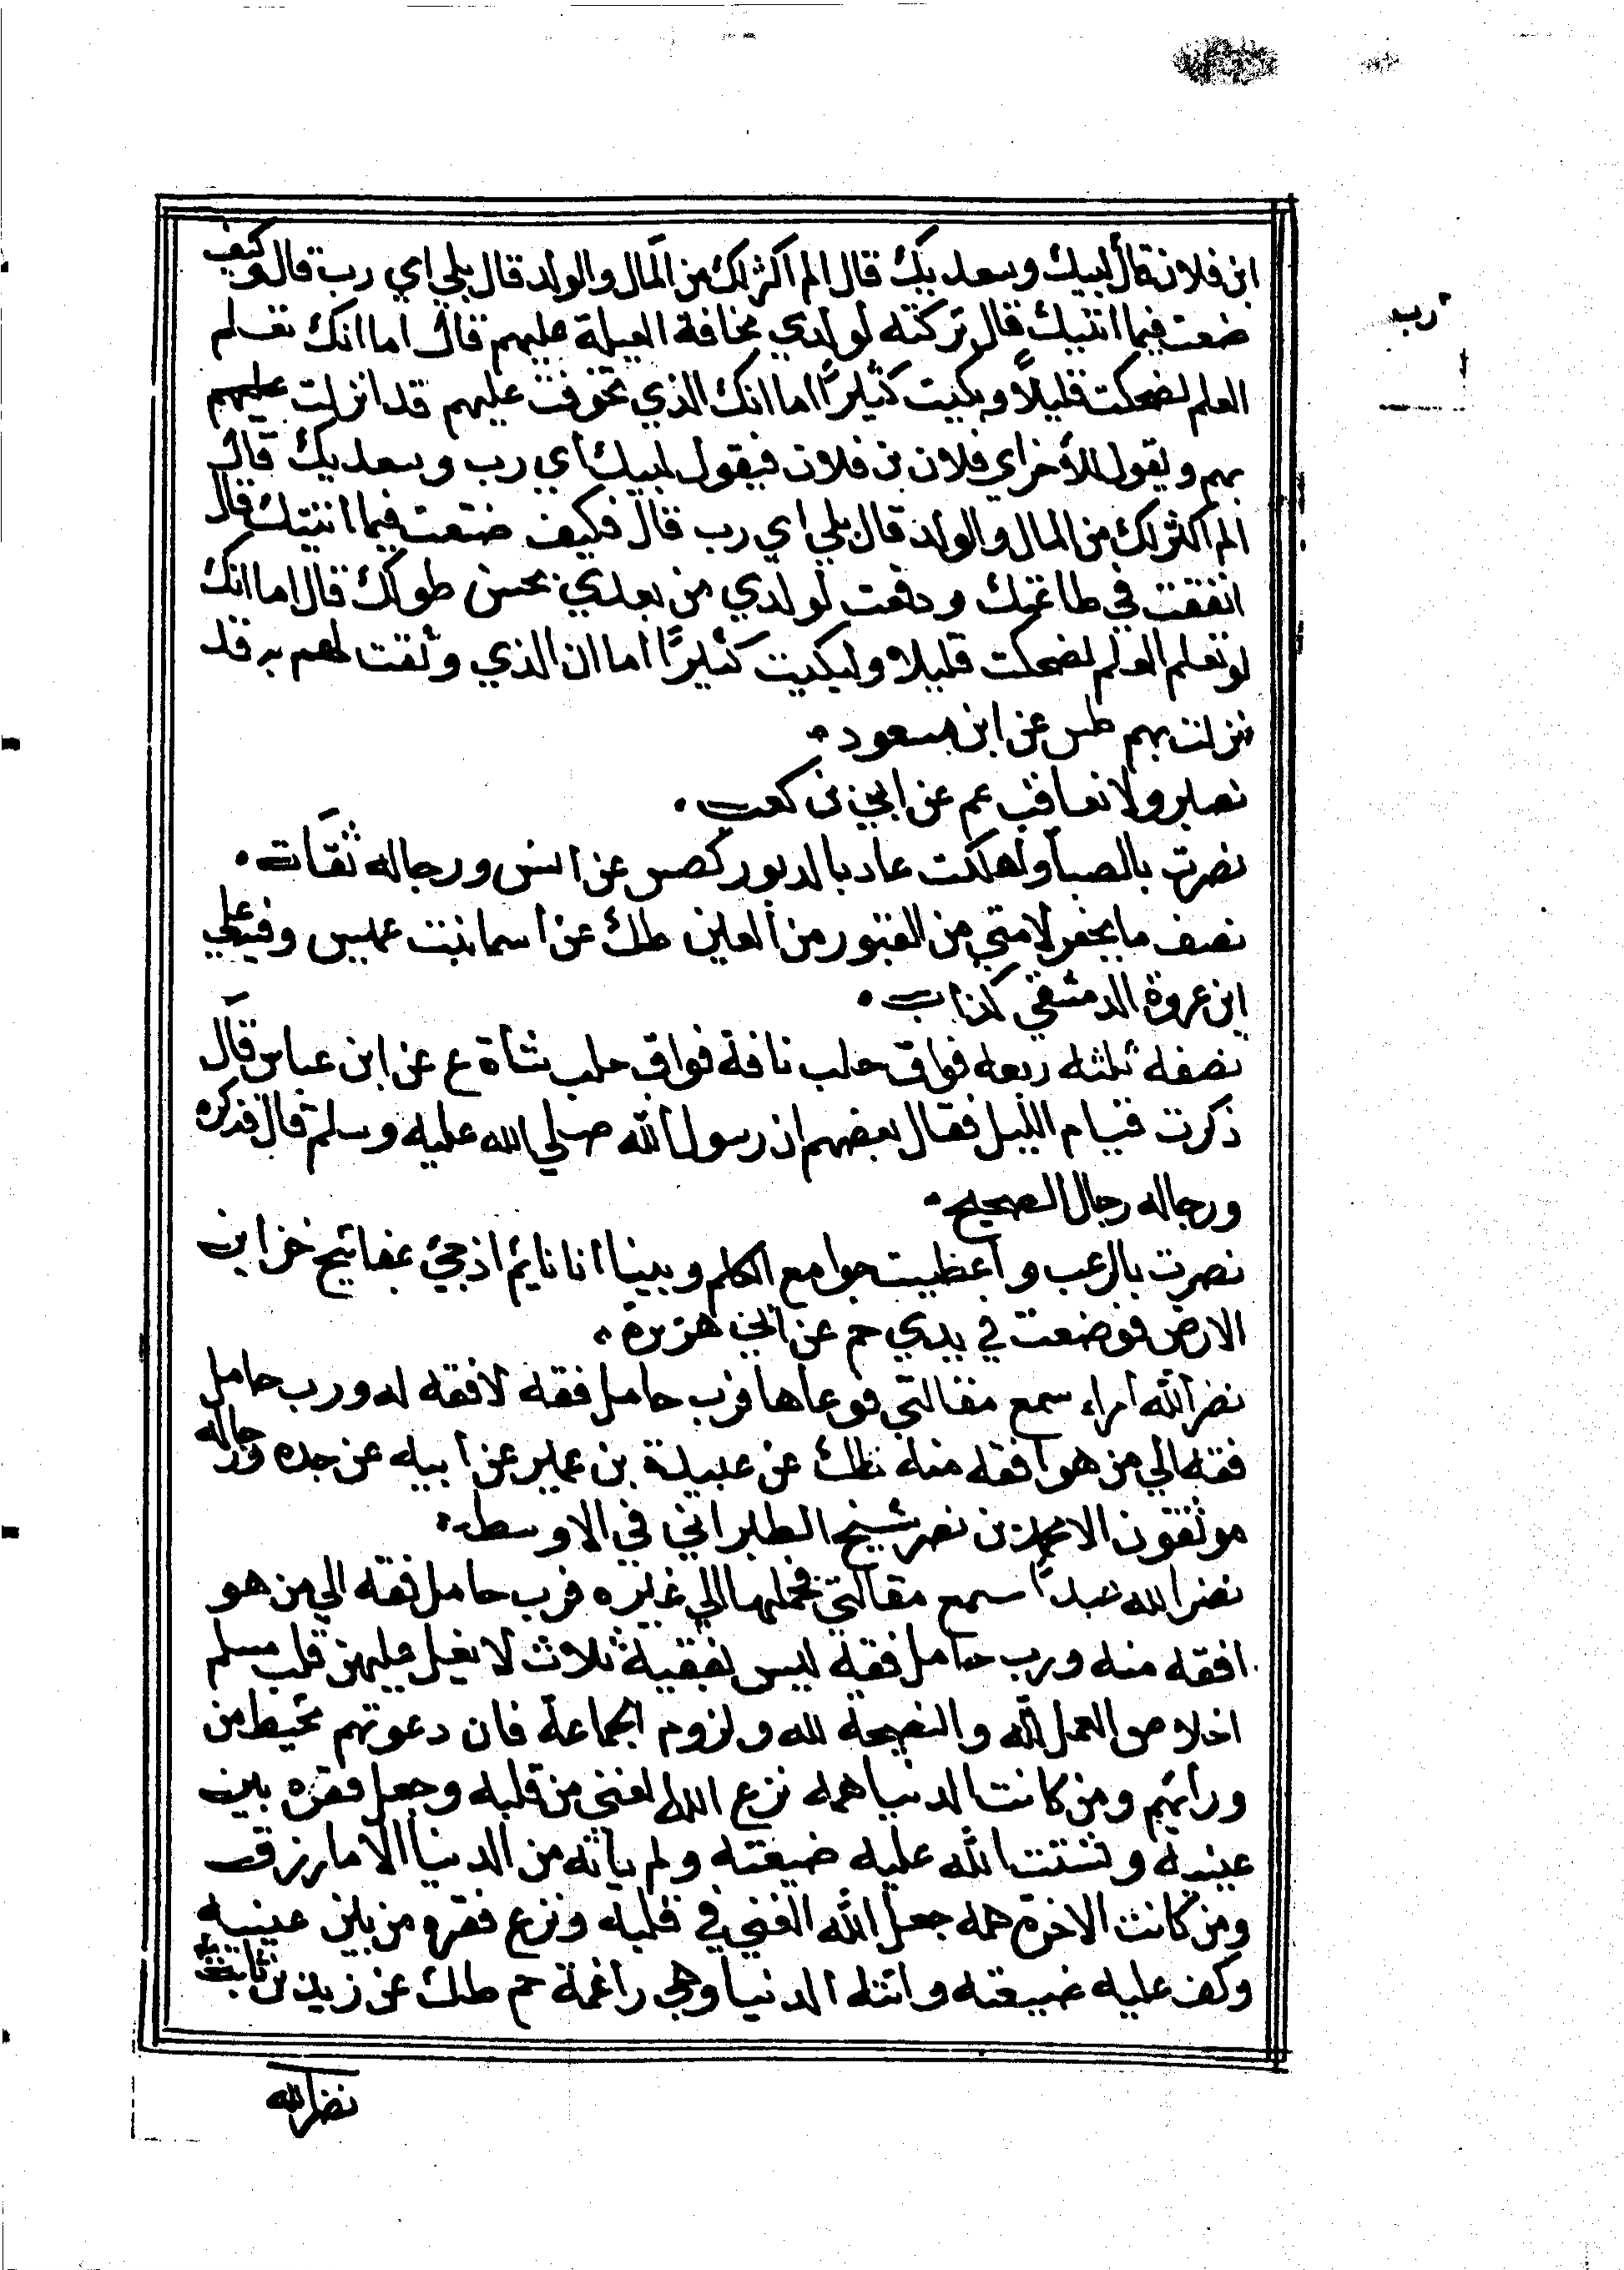 ابن فلان قال لبيك وسعديك قال الم اكثر لك من المال والولد قال بلي اي رب قال وكيف
رب
ضعت فيما اتيتك قال تركته لولدي مخافة العيلة عليهم قال اما انك تعلم
العلم لضحكت قليلاً وبكيت كثيراً اما انك الذي تخوفت عليهم قد انزلت عليهم
بهم ويقول للأخر اي فلان بن فلان فيقول لبيك اي رب وسعديك قال
الم اكثر لك من المال والولد قال بلي اي رب قال فكيف ضنعت فيما اتيتك قال
انفقت في طاعتك ودفعت لولدي من بعدي بحسن طولك قال اما انك
لو تعلم العلم لضحكت قليلا ولبكيت كثيرًا اما ان الذي وثقت لهم به قد
نزلت بهم طس عن ابن مسعود
نصبر ولا نعاقب عم عن ابي بن كعب
نصرت بالصبا واهلكت عاد بالدبور كصس عن انس ورجاله ثقات
نصف ما يحفر لامتي من القبور من العين طك عن اسما بنت عميس وفيه علي
ابن عروة الدمشقي كذاب
نصفه ثلثه ربعه فواق حلب ناقة فواق حلب شاة ع عن ابن عباس قال
ذكرت قيام الليل فقال بعضهم ان رسول الله صلي الله عليه وسلم قال فذكره
ورجاله رجال الصحيح
نصرت بالرعب واعطيت جوامع الكلم وبينا انا نايم اذ جئ بمفاتيح خزاين
الارض فوضعت في يدي حم عن ابي هريرة
نضر الله امراء سمع مقالتي فوعاها فرب حامل فقه لا فقه له ورب حامل
فقه الي من هو افقه منه طك عن عبيدة بن عمير عن ابيه عن جده ورجاله
موثقون الا محمد بن نصر شيخ الطبراني في الاوسط
نضر الله عبداً سمع مقالتي فحملها الي غيره فرب حامل فقه الي من هو
افقه منه ورب حامل فقه ليس بفقيه ثلاث لا يغل عليهن قلب مسلم
اخلاص العمل لله والنصيحة لله ولزوم الجماعة فان دعوتهم تحيط من
ورائهم ومن كانت الدنيا همه نزع الله الغني من قلبه وجعل فقره بين
عينيه وشتت الله عليه ضيعته ولم ياته من الدنيا الا ما رزق
ومن كانت الاخرة همه جعل الله الغني في قلبه ونزع فقره من بين عينيه
وكف عليه ضيعته واتته الدنيا وهي راغمة حم طك عن زيد بن ثابت
نضر الله